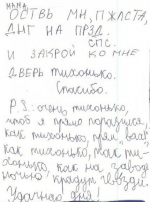 МАМА
ОСТВЬ МН, ПЖЛСТА,
ДНГ НА ПРЗД.
СПС.
И ЗАКРОЙ КО МНЕ
ДВЕРЬ тихонько.
Спасибо.
P.S: очень тихонько,
чтоб я прямо поразился,
как тихонько, прям "вай"
как тихонько, так ти-
хонько, как на заводе
ночью крадут гвозди.
Удачного дня!